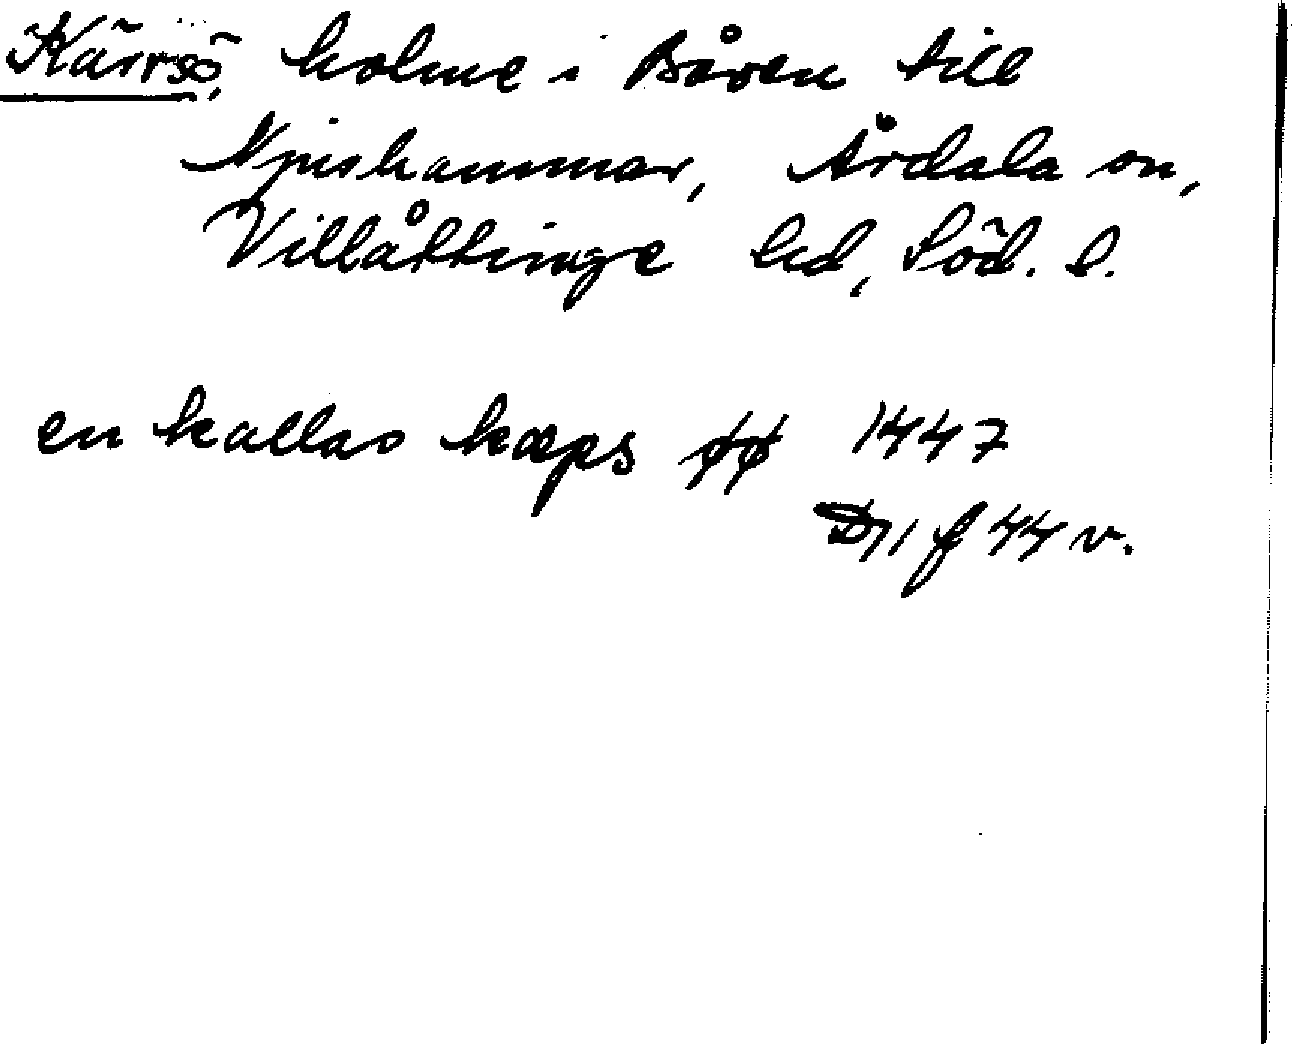 Kärrsö, holme i Båven till
Nynshammar, Årdala sn,
Villåttinge hd, Söd. l.
en kallas kæps øø 1447
D11 f 44 v.